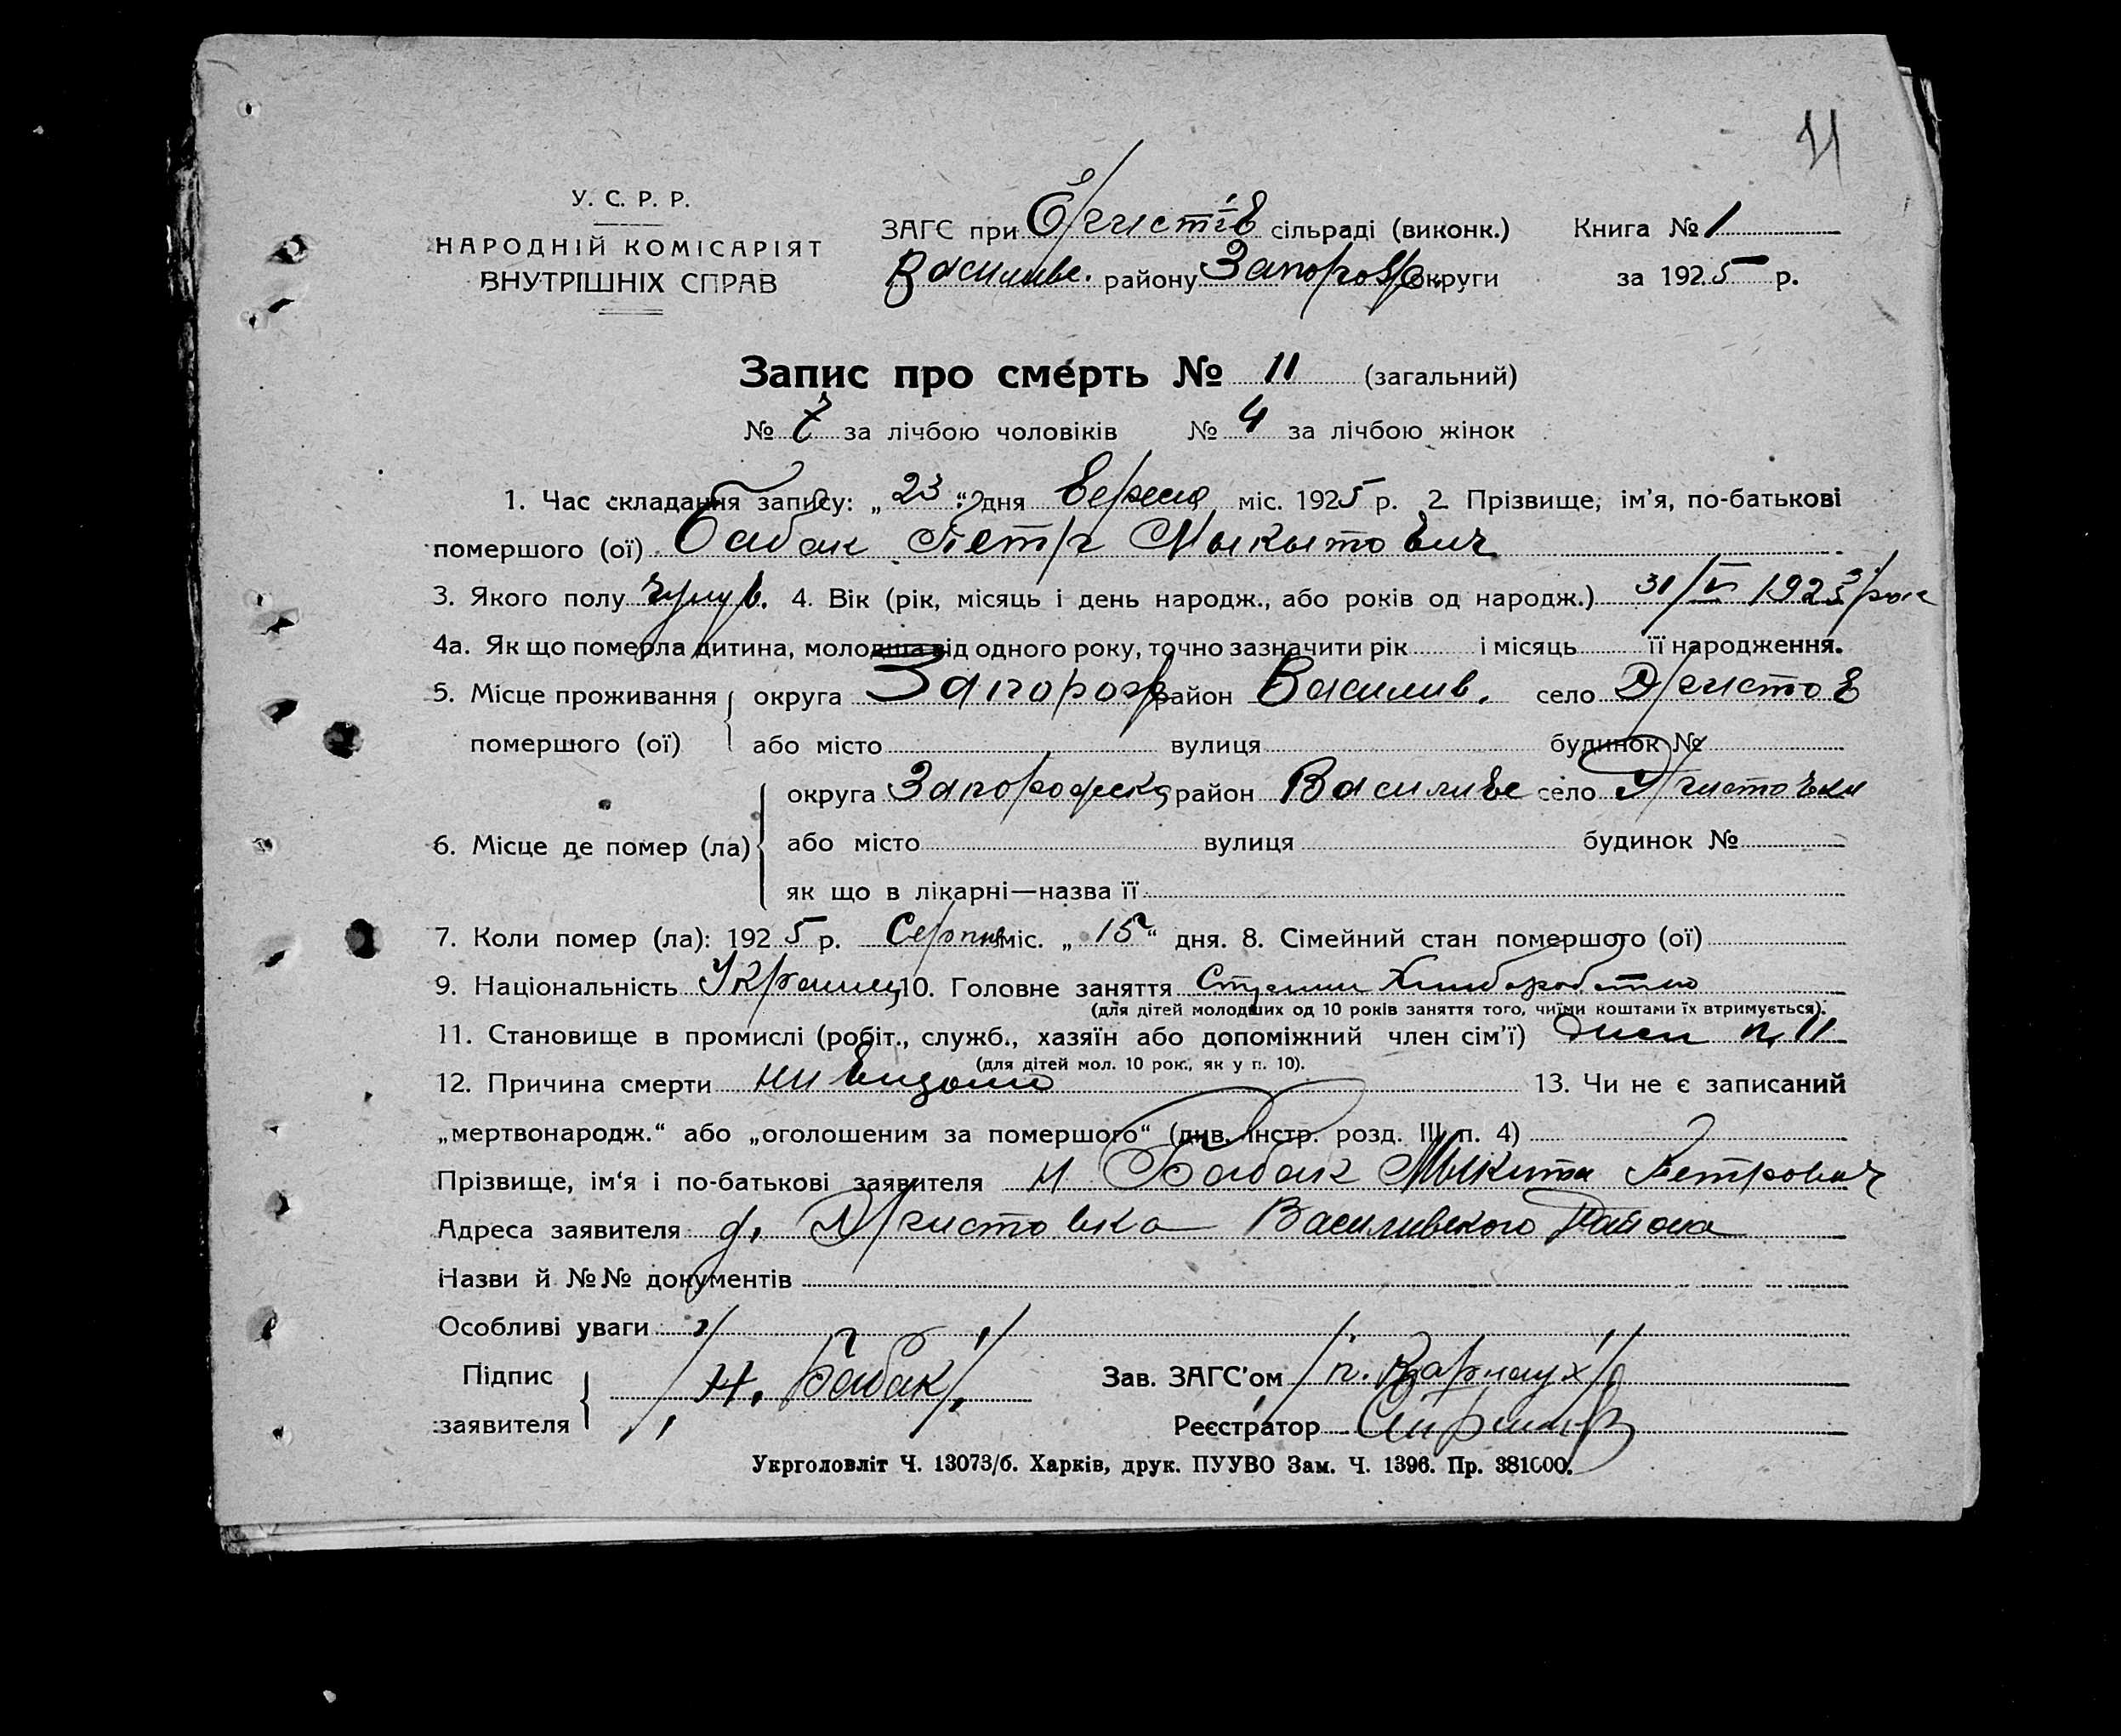 11
У. С. Р. Р.
НАРОДНІЙ КОМІСАРІЯТ
ВНУТРІШНІХ СПРАВ
ЗАГС при сільраді (виконк.) Книга № 1
Василиве. району Запорозь округи за 1925 р.
Запис про смерть № 11 (загальний)
№ 7 за лічбою чоловіків № 4 за лічбою жінок
1. Час складання запису: „23“ дня Вересня міс. 1925 р. 2. Прізвище, ім’я, по-батькові
помершого (ої) Бабак Петр Мыкытович
3. Якого полу 4. Вік (рік, місяць і день народж., або років од народж.) 31/V 1923 рок
4а. Як що померла дитина, молодша від одного року, точно зазначити рік і місяць її народження.
5. Місце проживання округа Запорож район Василив. село
помершого (ої) або місто вулиця будинок №
округа Запорожска район Василиве село
6. Місце де помер (ла) або місто вулиця будинок №
як що в лікарні—назва її
7. Коли помер (ла): 1925 р. Серпня міс. „15“ дня. 8. Сімейний стан помершого (ої)
9. Національність Украинец 10. Головне заняття
(для дітей молодших од 10 років заняття того, чиїми коштами їх втримується).
11. Становище в промислі (робіт., служб., хазяїн або допоміжний член сім’ї) п. 11
(для дітей мол. 10 рок., як у п. 10).
12. Причина смерти ни видомо 13. Чи не є записаний
„мертвонародж.“ або „оголошеним за помершого“ (див. інстр. розд. III п. 4)
Прізвище, ім‘я і по-батькові заявителя Бабак Мыкита Петрович
Адреса заявителя Василивского Района
Назви й №№ документів
Особливі уваги
Підпис
заявителя /Н. Бабак/
Зав. ЗАГС’ом /п. Варнаух/
Реєстратор
Укрголовліт Ч. 13073/б. Харків, друк. ПУУВО Зам. Ч. 1396. Пр. 381000.